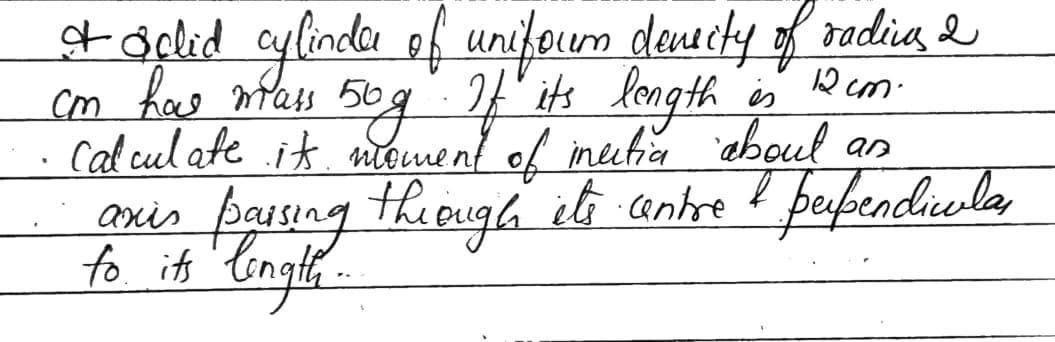 A solid cylinder of uniform density of radius 2
cm has mass 50g. If its length is 12 cm.
Calculate its moment of inertia about an
axis passing through its centre & perpendicular
to its length.